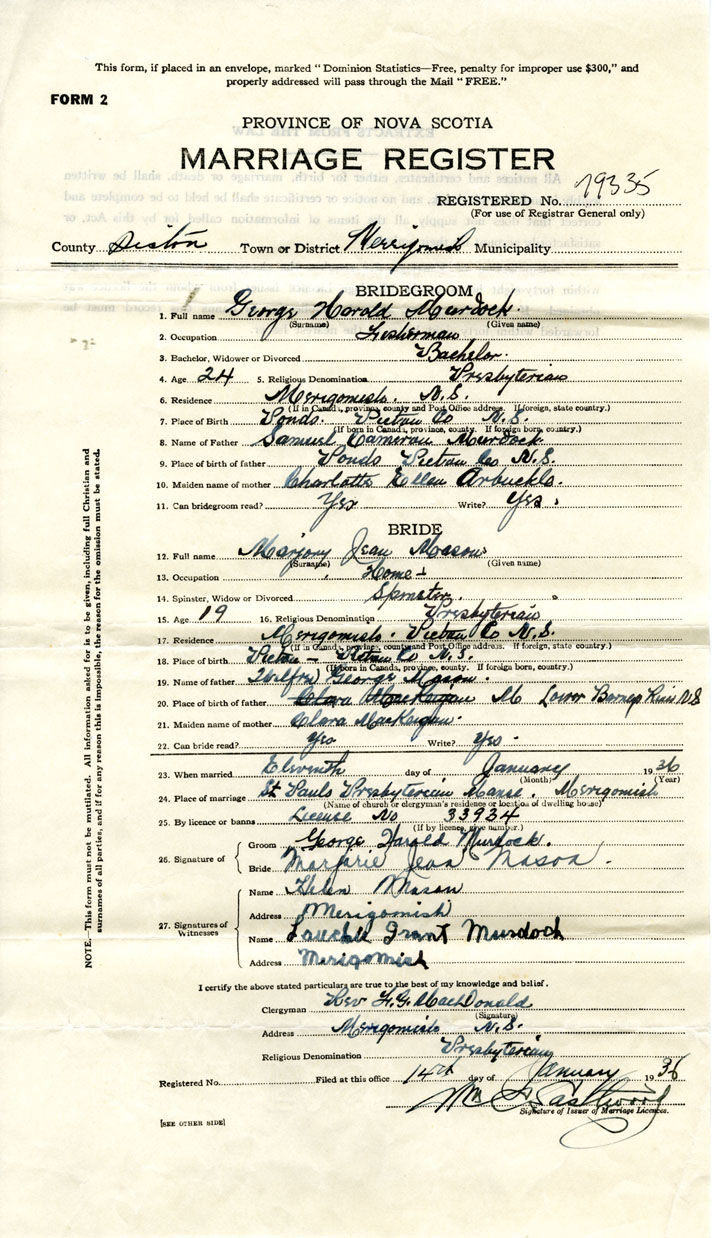 This form, if placed in an envelope, marked "Dominion Statistics—Free, penalty for improper use $300," and
properly addressed will pass through the Mail "FREE."
FORM 2
PROVINCE OF NOVA SCOTIA
MARRIAGE REGISTER
REGISTERED No. 79335
(For use of Registrar General only)
County Pictou Town or District Merigomish Municipality
BRIDEGROOM
1. Full name George Harold Murdock
(Surname) (Given name)
2. Occupation Fisherman
3. Bachelor, Widower or Divorced Bachelor.
4. Age 24 5. Religious Denomination Presbyterian
6. Residence Merigomish. N.S.
(If in Canada, province, county and Post Office address. If foreign, state country.)
7. Place of Birth Ponds. Pictou Co N.S.
(If born in Canada, province, county. If foreign born, country.)
8. Name of Father Samuel Cameron Murdock.
9. Place of birth of father Ponds Pictou Co N.S.
10. Maiden name of mother Charlotte Ellen Arbuckle.
11. Can bridegroom read? Yes Write? Yes.
BRIDE
12. Full name Marjory Jean Mason
(Surname) (Given name)
13. Occupation Home
14. Spinster, Widow or Divorced Spinster.
15. Age 19 16. Religious Denomination Presbyterian
17. Residence Merigomish. Pictou Co N.S.
(If in Canada, province, county and Post Office address. If foreign, state country.)
18. Place of birth Pictou - Pictou Co N.S.
(If born in Canada, province, county. If foreign born, country.)
19. Name of father Wilfred George Mason.
20. Place of birth of father Clara MacKeigan Lower Barneys River NS
21. Maiden name of mother Clara MacKeigan.
22. Can bride read? Yes Write? Yes.
23. When married Eleventh day of January 1936
(Month) (Year)
24. Place of marriage St Pauls Presbyterian Manse. Merigomish
(Name of church or clergyman's residence or location of dwelling house)
25. By licence or banns License No 33934
(If by licence, give number.)
26. Signature of Groom George Harold Murdock.
Bride Marjorie Jean Mason.
27. Signatures of Witnesses
Name Helen Mason
Address Merigomish
Name Grant Murdoch
Address Merigomish
I certify the above stated particulars are true to the best of my knowledge and belief.
Clergyman Rev F.G. MacDonald
(Signature)
Address Merigomish N.S.
Religious Denomination Presbyterian
Registered No. Filed at this office 14th day of January 1936
Wm Eastwood
Signature of Issuer of Marriage Licences.
[SEE OTHER SIDE]
NOTE.—This form must not be mutilated. All information asked for is to be given, including full Christian and
surnames of all parties, and if for any reason this is impossible, the reason for the omission must be stated.